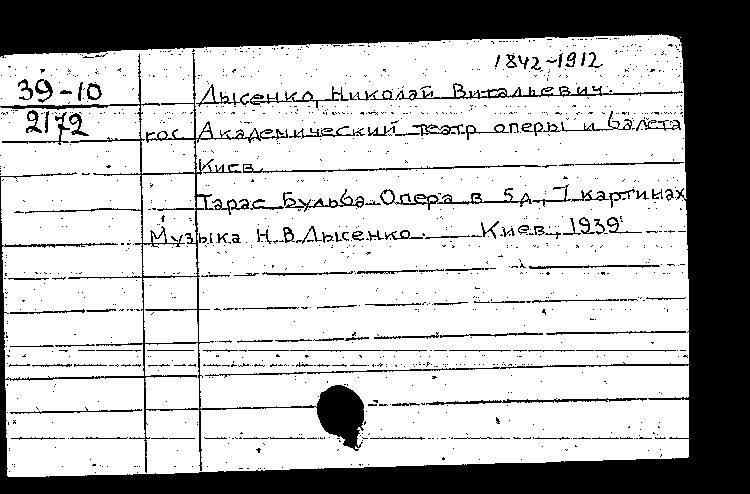 1842-1912
39-10
2172
Лысенко, Николай Витальевич.
гос Академический театр оперы и балета
Киев.
Тарас Бульба. Опера в 5 д., 7 картинах
Музыка Н.В. Лысенко. Киев, 1939